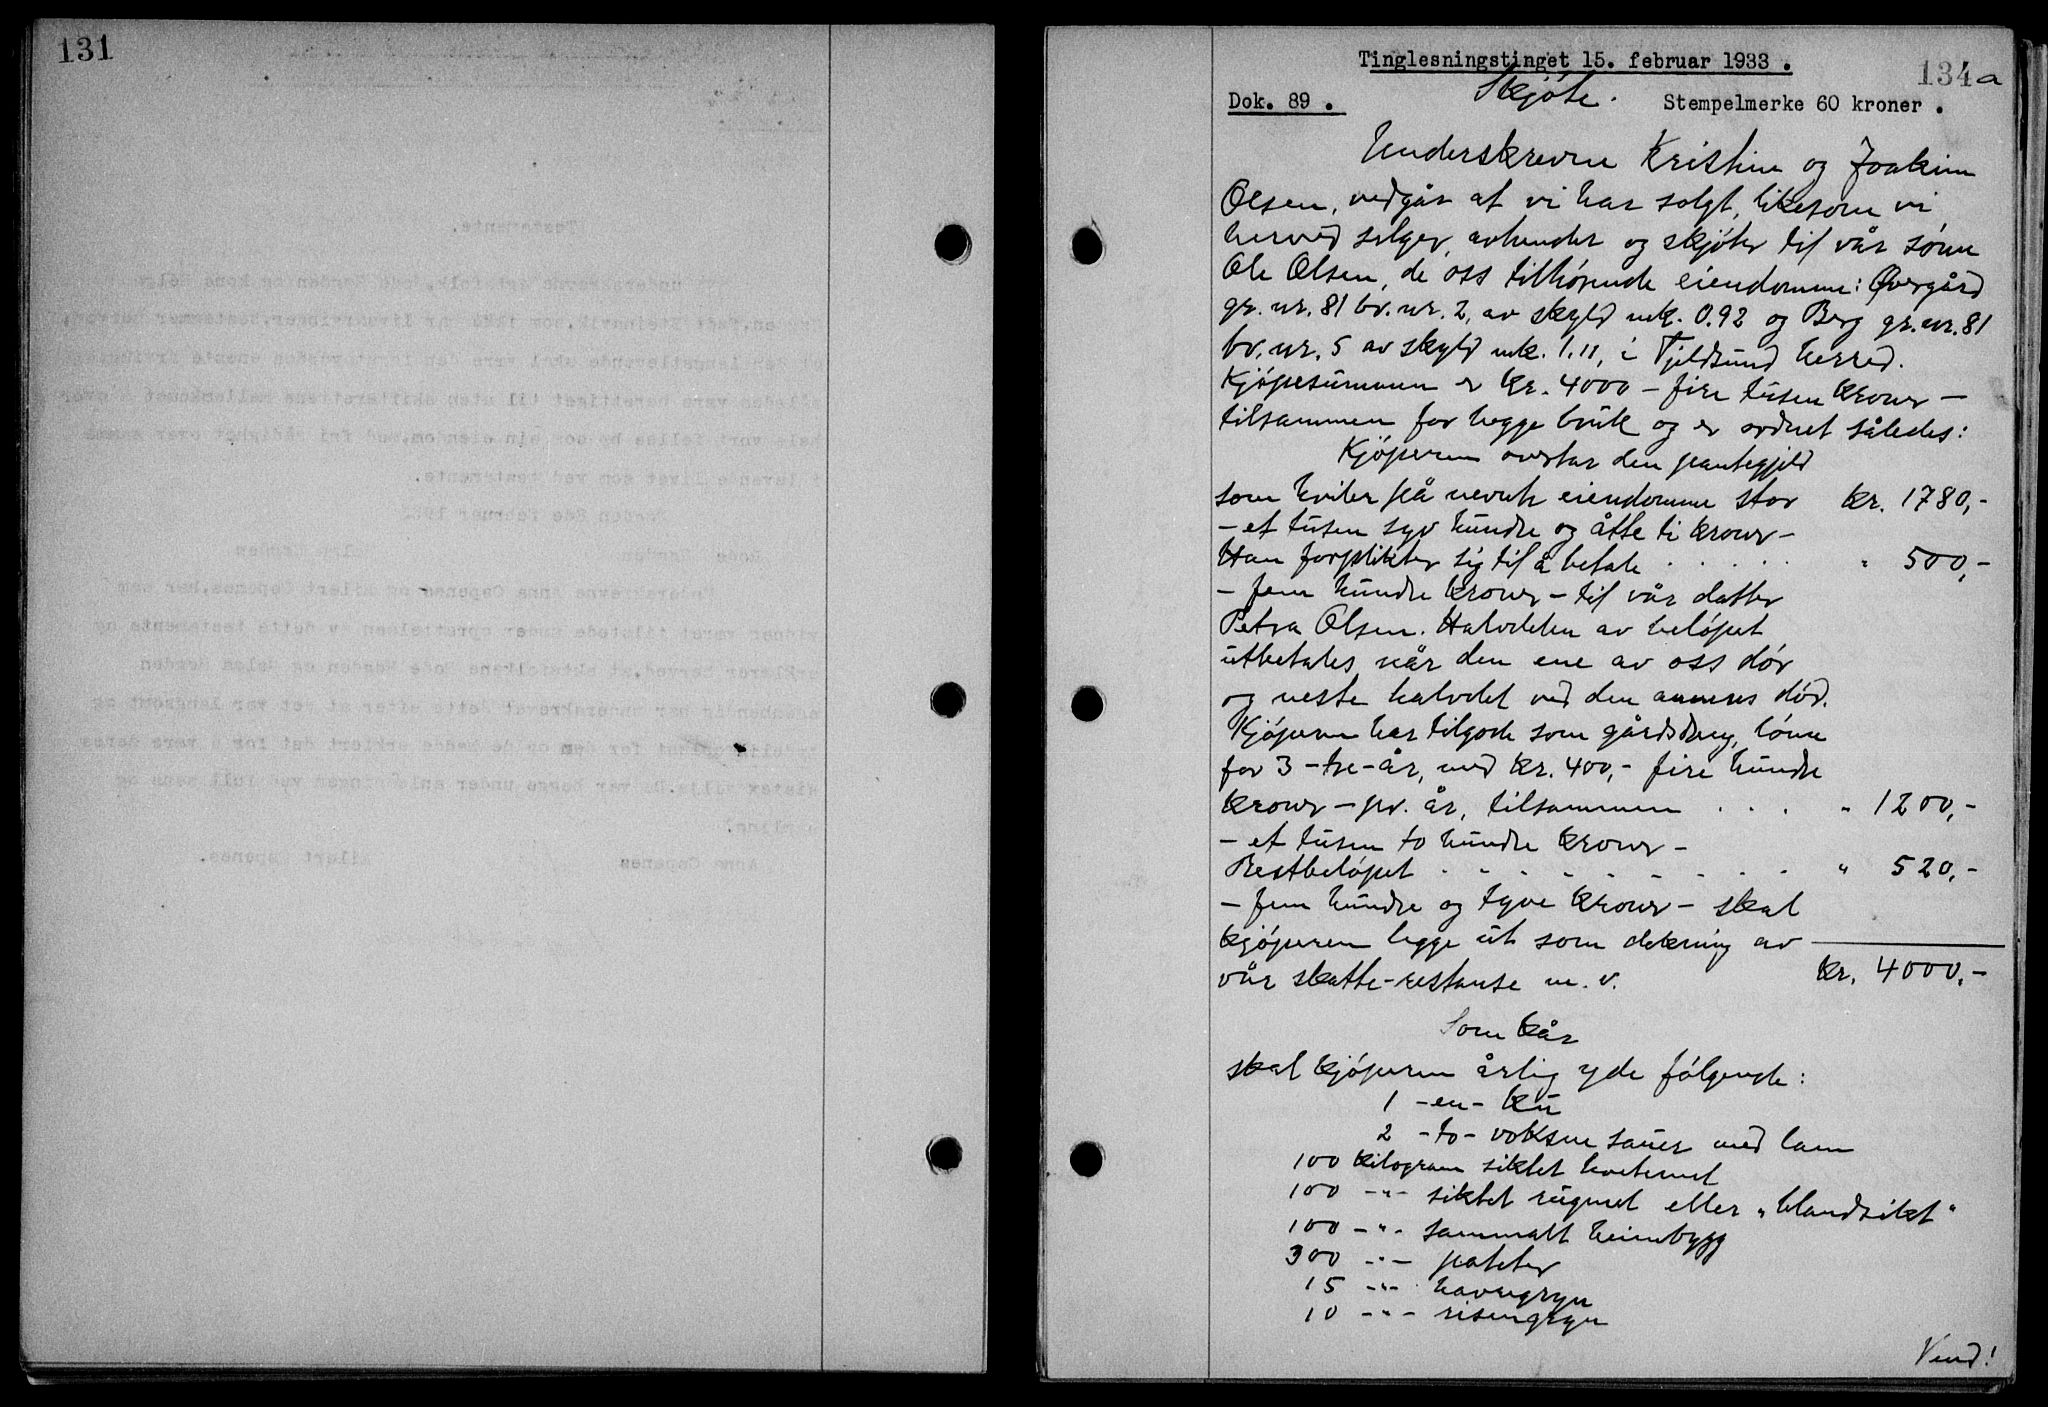 131
Tinglesningstinget 15. februar 1933.
134a
Skjøte.
Dok. 89.
Stempelmerke 60 kroner.
Underskrevne Kristine og Joakim
Olsen, vedgår at vi har solgt, likesom vi
herved selger, avhender og skjøter til vår sønn
Ole Olsen, de oss tilhørende eiendomme: Øvergård
gr. nr. 81 br. nr. 2, av skyld mk. 0.92 og Berg gr. nr. 81
br. nr. 5 av skyld mk. 1.11, i Tjeldsund herred.
Kjøpesummen er kr. 4000 - fire tusen kroner -
tilsammen for begge bruk og er ordnet således:
Kjøperen overtar den pantegjeld
som hviler på nevnte eiendomme stor kr. 1780,-
- et tusen syv hundre og åtte ti kroner -
Han forplikter sig til å betale . . . . . " 500,-
- fem hundre kroner - til vår datter
Petra Olsen. Halvdelen av beløpet
utbetales når den ene av oss dør
og neste halvdel ved den annens død.
Kjøperen har tilgode som gårdsdreng, lønn
for 3 - tre - år, med kr. 400,- fire hundre
kroner - pr. år, tilsammen . . . " 1200,-
- et tusen to hundre kroner -
Restbeløpet . . . . . . . . . " 520,-
- fem hundre og tyve kroner - skal
kjøperen legge ut som dekning av
vår skatte-restanse m. v. kr. 4000,-
Som kår
skal kjøperen årlig yde følgende:
1 - en - ku
2 - to - voksne sauer med lam
100 kilogram siktet hvetemel
100 -"- siktet rugmel eller "blandsikt"
100 -"- sammalt heimbygg
300 -"- poteter
15 -"- havregryn
10 -"- risengryn
Vend!